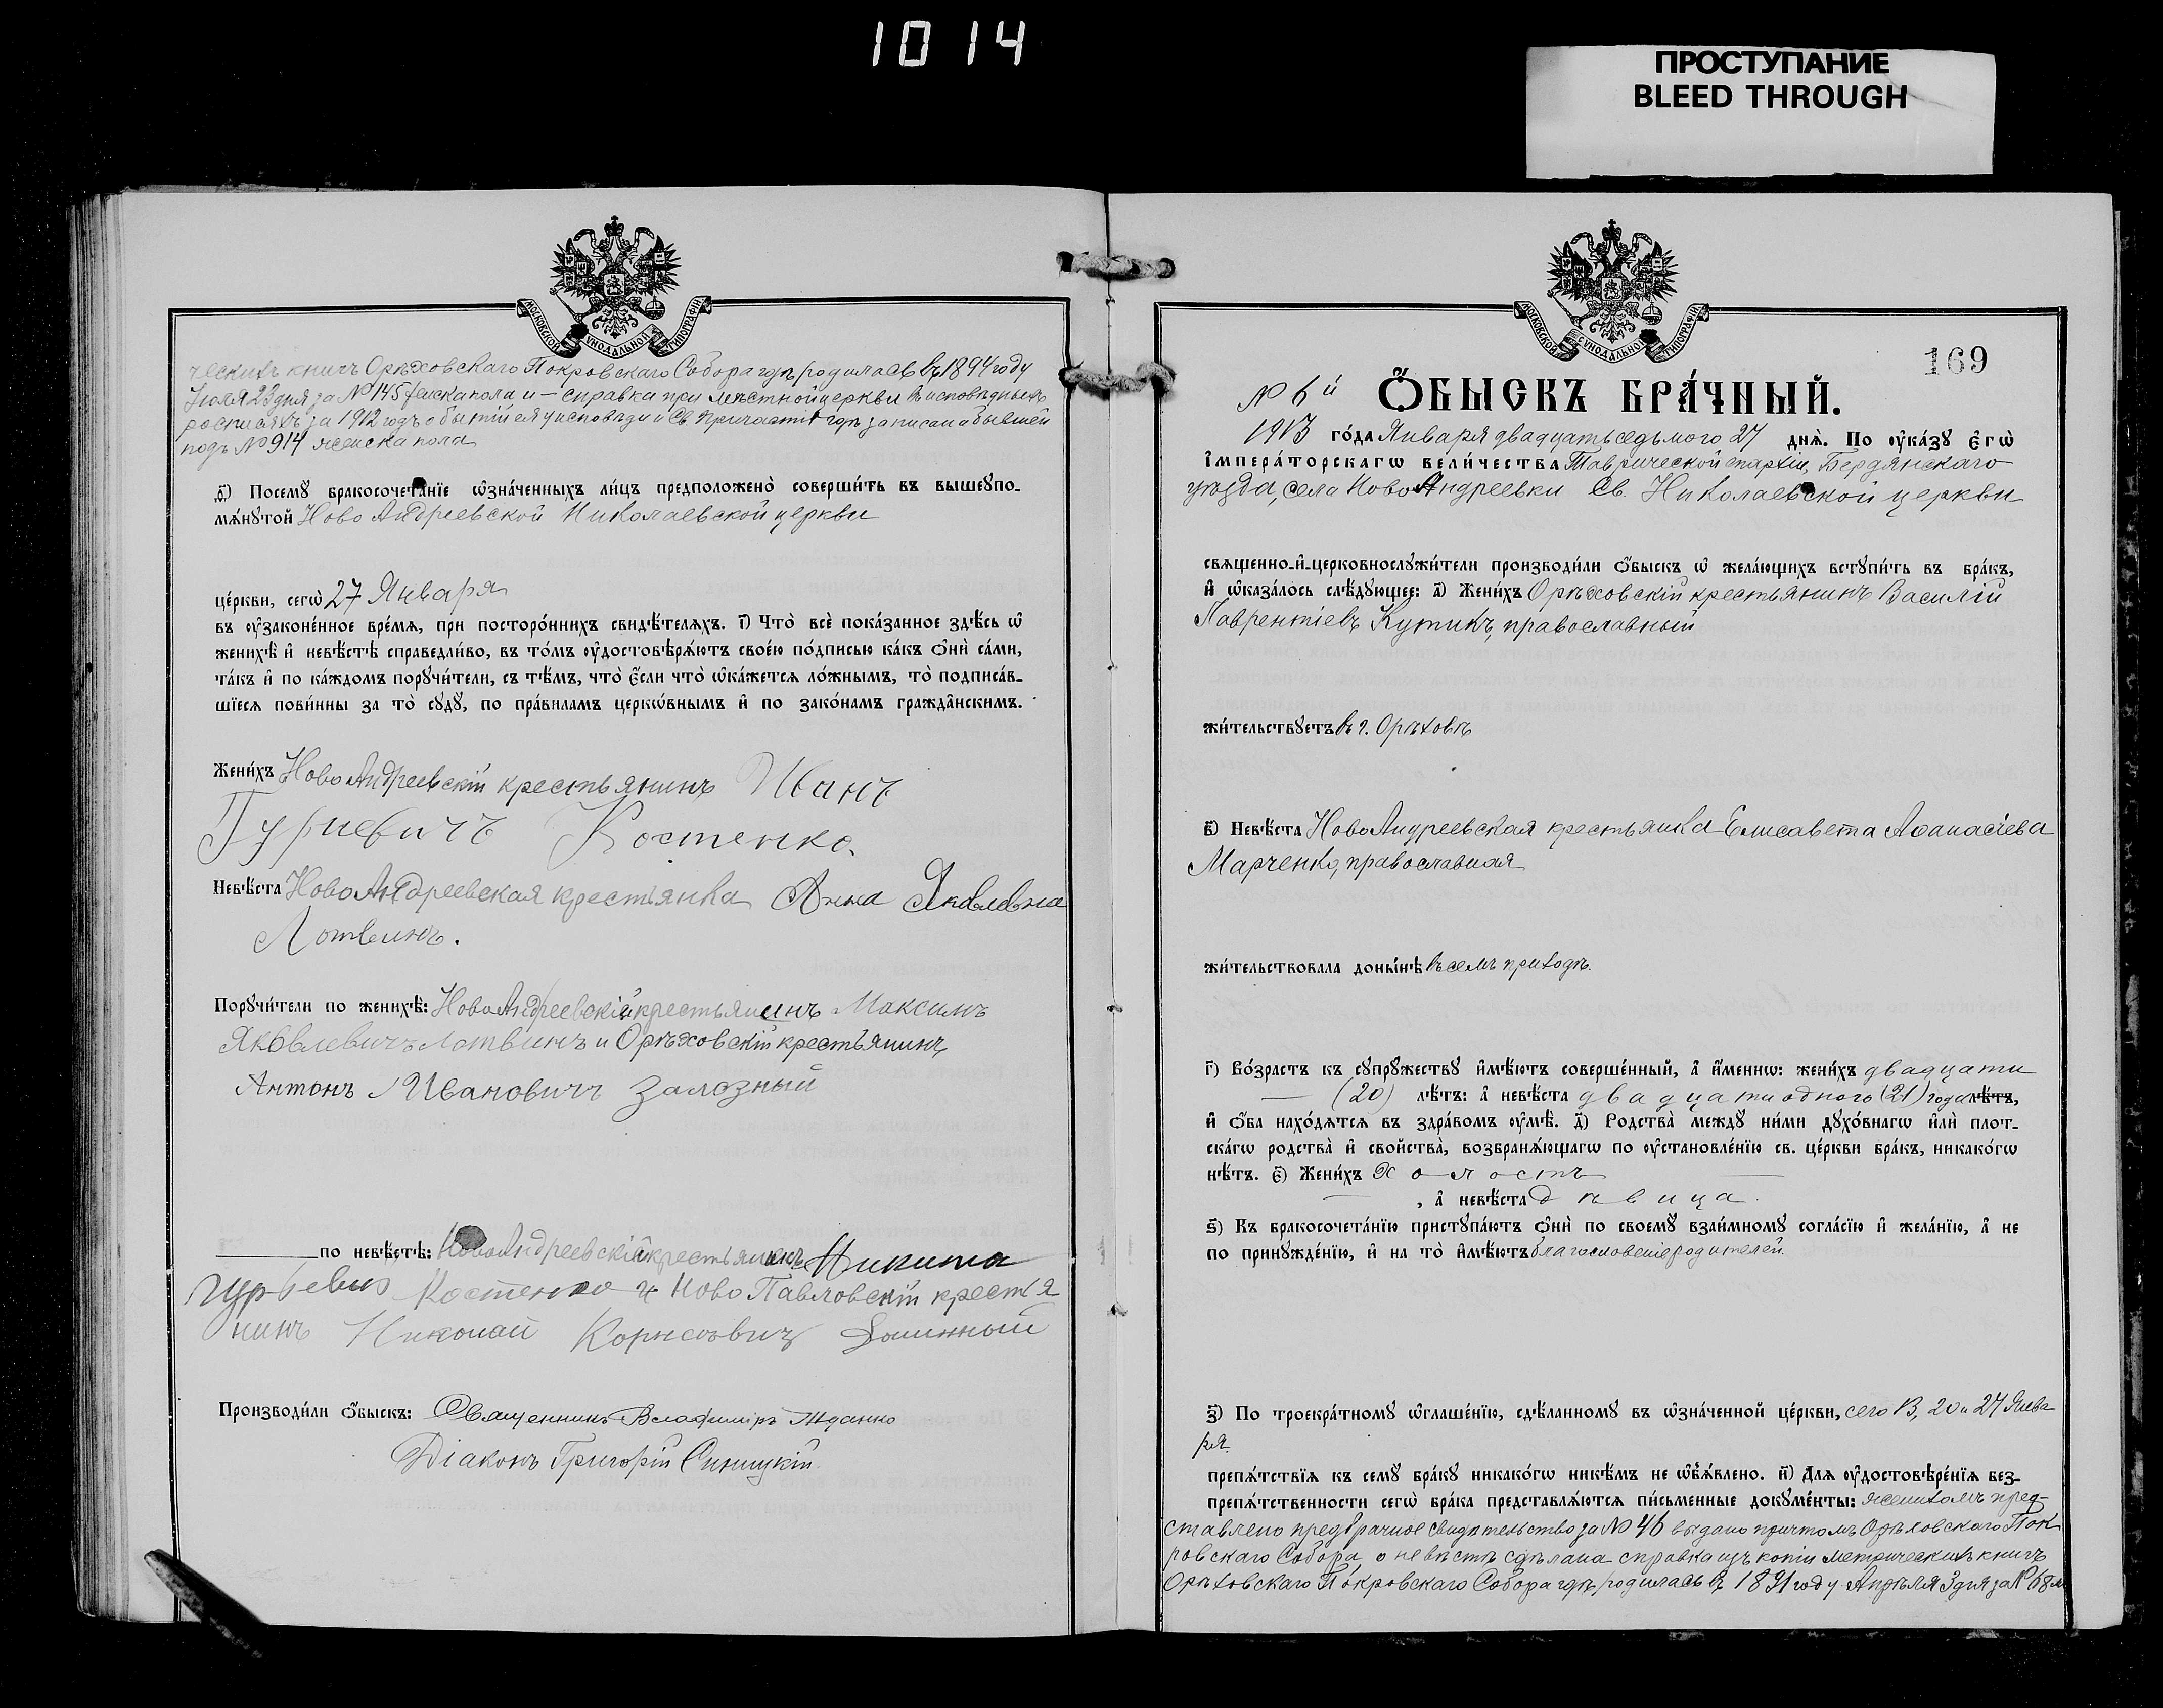 1014
ПРОСТУПАНИЕ
BLEED THROUGH
МОСКОВСКОЙ СѴНОДАЛЬНОЙ ТИПОГРАФІИ
ческихъ книгъ Орѣховскаго Покровскаго Собора гдѣ родилась въ 1894 году
Іюля 23 дня за № 145 женска пола и – справка при мѣстной церкви въ исповѣдныхъ
росписяхъ за 1912 годъ о бытіи ея у исповѣди и Св. Причастія гдѣ записана бывшей
подъ № 914 женска пола
ѳ҃) Посемꙋ бракосочета́нїе ѡ҆зна́ченныхъ ли́цъ предположено̀ соверши́ть въ вышеꙋпо-
мѧ́нꙋтой Ново Андреевской Николаевской церкви
це́ркви, сегѡ̀ 27 Января
въ ᲂу҆законе́нное вре́мѧ, при посторо́ннихъ свидѣ́телѧхъ. і҃) Что̀ всѐ пока́занное здѣ́сь ѡ҆
женихѣ̀ и҆ невѣ́стѣ справедли́во, въ то́мъ ᲂу҆достовѣрѧ́ютъ свое́ю по́дписью ка́къ ѻ҆нѝ са́ми,
та́къ и҆ по ка́ждомъ порꙋчи́тели, съ тѣ́мъ, что̀ є҆́сли что̀ ѡ҆ка́жетсѧ ло́жнымъ, то̀ подписа́в-
шїесѧ пови́нны за то̀ сꙋдꙋ̀, по пра́виламъ церко́внымъ и҆ по зако́намъ гражда́нскимъ.
Жени́хъ Ново Андреевскій крестьянинъ Иванъ
Гурієвичъ Костенко.
Невѣ́ста Ново Андреевская крестьянка Анна Яковлевна
Лотвинъ.
Порꙋчи́тели по женихѣ̀: Ново Андреевскій крестьянинъ Максимъ
Яковлевичъ Лотвинъ и Орѣховскій крестьянинъ
Антонъ Ивановичъ Залозный
по невѣ́стѣ: Ново Андреевскій крестьянинъ Никита
Гурьевич Костенко и Ново Павловскій крестья
нинъ Николай
Производи́ли ѻ҆́быскъ: Священникъ Владиміръ Жданко
Діаконъ Григорій Синицкій
МОСКОВСКОЙ СѴНОДАЛЬНОЙ ТИПОГРАФІИ
169
№ 6й
Ѻ҆́БЫСКЪ БРА́ЧНЫЙ.
1913 го́да Января двадцать седьмого 27 днѧ̀. По ᲂу҆ка́зꙋ є҆гѡ̀
і҆мпера́торскагѡ вели́чества Таврической епархіи, Бердянскаго
уѣзда, села Ново Андреевки Св. Николаевской церкви
свѧщенно-и҆-церковнослꙋжи́тели производи́ли ѻ҆́быскъ ѡ҆ жела́ющихъ встꙋпи́ть въ бра́къ,
и҆ ѡ҆каза́лось слѣ́дꙋющее: а҃) Жени́хъ Орѣховскій крестьянинъ Василій
Лаврентіевъ Кутикъ, православный
жи́тельствꙋетъ въ г. Орѣховѣ
в҃) Невѣ́ста Ново Андреевская крестьянка Елисавета Аѳанасіева
Марченко, православная
жи́тельствовала доны́нѣ въ семъ приходѣ.
г҃) Во́зрастъ къ сꙋпрꙋ́жествꙋ и҆мѣ́ютъ соверше́нный, а҆ и҆́меннѡ: жени́хъ двадцати
(20) лѣ́тъ: а҆ невѣ́ста двадцати одного (21) года лѣ́тъ,
и҆ ѻ҆́ба нахо́дѧтсѧ въ здра́вомъ ᲂу҆мѣ̀. д҃) Родства̀ междꙋ ни́ми дꙋхо́внагѡ и҆лѝ плот-
ска́гѡ родства̀ и҆ свойства̀, возбранѧ́ющагѡ по ᲂу҆становле́нїю св. це́ркви бра́къ, никако́гѡ
нѣ́тъ. є҃) Жени́хъ холостъ
, а҆ невѣ́ста дѣвица.
ѕ҃) Къ бракосочета́нїю пристꙋпа́ютъ ѻ҆нѝ по своемꙋ̀ взаи́мномꙋ согла́сїю и҆ жела́нїю, а҆ не
по принꙋжде́нїю, и҆ на то̀ и҆мѣ́ютъ благословеніе родителей.
з҃) По троекра́тномꙋ ѡ҆глаше́нїю, сдѣ́ланномꙋ въ ѡ҆зна́ченной це́ркви, сего 13, 20 и 27 Янва
ря.
препѧ́тствїѧ къ семꙋ̀ бра́кꙋ никако́гѡ никѣ́мъ не ѡ҆б̾ѧ́влено. и҃) Длѧ ᲂу҆достовѣре́нїѧ без-
препѧ́тственности сегѡ̀ бра́ка представлѧ́ютсѧ пи́сьменные докꙋме́нты: женихомъ пред-
ставлено предбрачное свидѣтельство за № 46 выдано причтомъ Орѣховскаго Пок
ровскаго Собора, о невѣстѣ сдѣлана справка изъ копіи метрическихъ книгъ
Орѣховскаго Покровскаго Собора гдѣ родилась въ 1891 году Апрѣля 3 дня за № 68